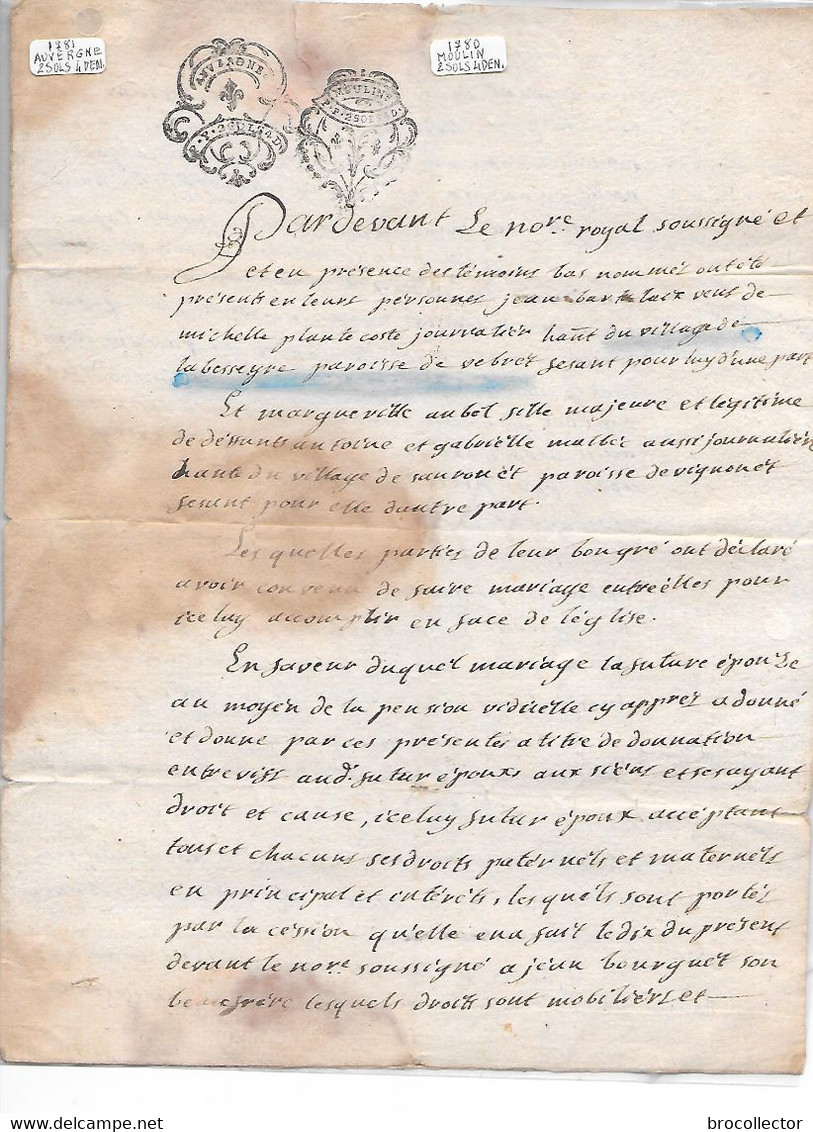 1781
AUVERGNE
2 SOLS 4 DEN.
1780
MOULIN
2 SOLS 4 DEN.
AUVERGNE
P.P. 2 SOLS 4 D
MOULINS
P. 2 SOLS 4 D.
Pardevant Le no.re royal soussigné et
et en présence des témoins bas nommés ont été
présents en leurs personnes jean veuf de
michelle plantecoste journalier hañt du village de
labesseyre paroisse de vebret fesant pour luy d'une part
Et margueritte aubel fille majeure et légitime
de déffunts antoine et gabrielle malbéc aussi journalière
hante du village de sauronét paroisse de vignonét
fesant pour elle d'autre part.
Les quelles parties de leur bongré ont déclaré
avoir convenu de faire mariage entreélles pour
iceluy accomplir en face de l'église.
En faveur duquél mariage la future épouse
au moyén de la pension viduélle cy apprés a donné
et donne par ces présentes a titre de donnation
entrevifs aud. futur époux aux siéns et ses ayant
droit et cause, iceluy futur époux accéptant
tous et chacuns ses droits patérnéls et matérnéls
en principal et intéréts, les quéls sont portés
par la céssion qu'élle en a fait le dix du présent
devant le no.re soussigné a jéan bourguét son
beaufrére lesquels droits sont mobiliérs et
brocollector